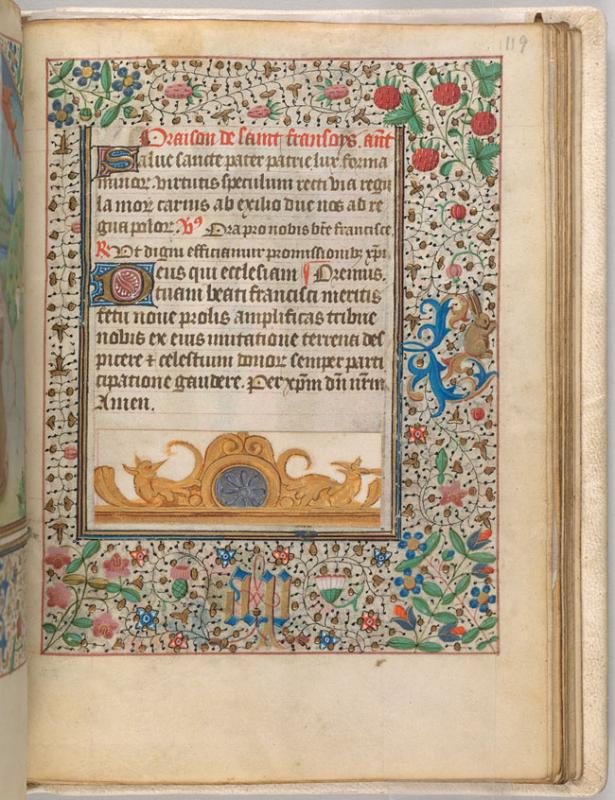 119
Oraison de saint fransoys. ant
Salue sancte pater patrie lux forma
minor. virtutis speculum recti via regu
la mor carius ab exilio duc nos ad re
gna polor. V9 Ora pro nobis bte francisce.
R Ut digni efficiamur promissionib3 xpi.
Deus qui ecclesiam Oremus.
tuam beati francisci meritis
fetu noue prolis amplificas tribue
nobis ex eius imitatione terrena des
picere & celestium donor semper parti
cipatione gaudere. Per xpm dn nrm
Amen.